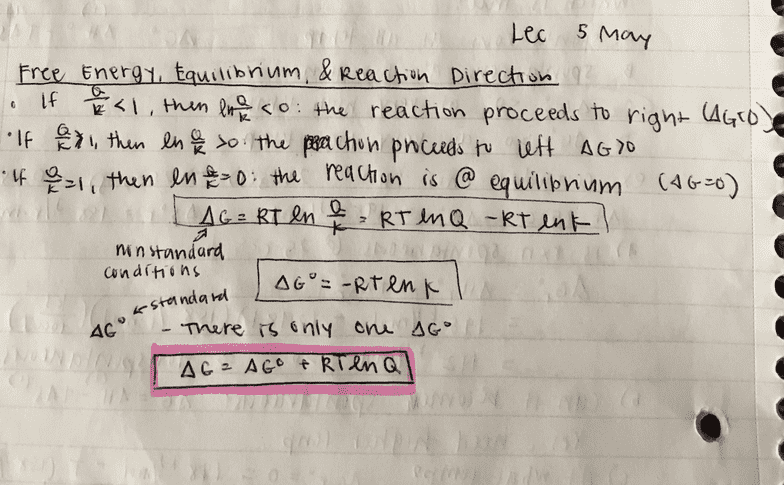 Lec 5 May
Free Energy, Equilibrium, & Reaction Direction
• If Q/K < 1, then ln Q/K < 0: the reaction proceeds to right (ΔG<0)
• If Q/K > 1, then ln Q/K > 0: the reaction proceeds to left ΔG>0
• If Q/K = 1, then ln Q/K = 0: the reaction is @ equilibrium (ΔG=0)
ΔG = RT ln Q/K = RT ln Q - RT ln K
nonstandard
conditions
ΔG° = -RT ln K
← standard
ΔG° - There is only one ΔG°
ΔG = ΔG° + RT ln Q